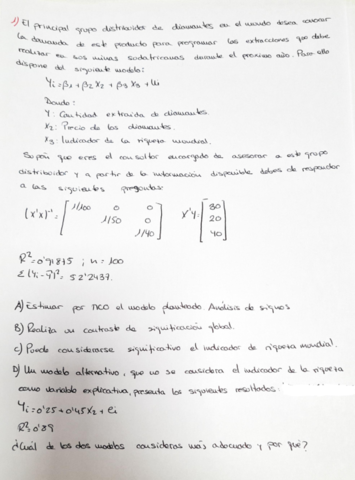 1) El principal grupo distribuidor de diamantes en el mundo desea conocer
la demanda de este producto para programar las extracciones que debe
realizar en sus minas sudafricanas durante el proximo año. Para ello
dispone del siguiente modelo:
Yi = β1 + β2 X2 + β3 X3 + Ui
Donde:
Y: Cantidad extraida de diamantes.
X2: Precio de los diamantes.
X3: Indicador de la riqueza mundial.
Supón que eres el consultor encargado de asesorar a este grupo
distribuidor y a partir de la información disponible debes de responder
a las siguientes preguntas:
(X'X)⁻¹ = [1/100 0 0
1/50 0
1/40] X'Y = [80
20
40]
R² = 0'91815 ; n = 100
Σ(Yi - Ȳ)² = 52'2437.
A) Estimar por MCO el modelo planteado Análisis de signos
B) Realiza un contraste de significación global.
C) Puede considerarse significativo el indicador de riqueza mundial.
D) Un modelo alternativo, que no se considera el indicador de la riqueza
como variable explicativa, presenta los siguientes resultados:
Yi = 0'25 + 0'45 X2 + ei
R² = 0'89
¿Cuál de los dos modelos consideras más adecuado y por qué?